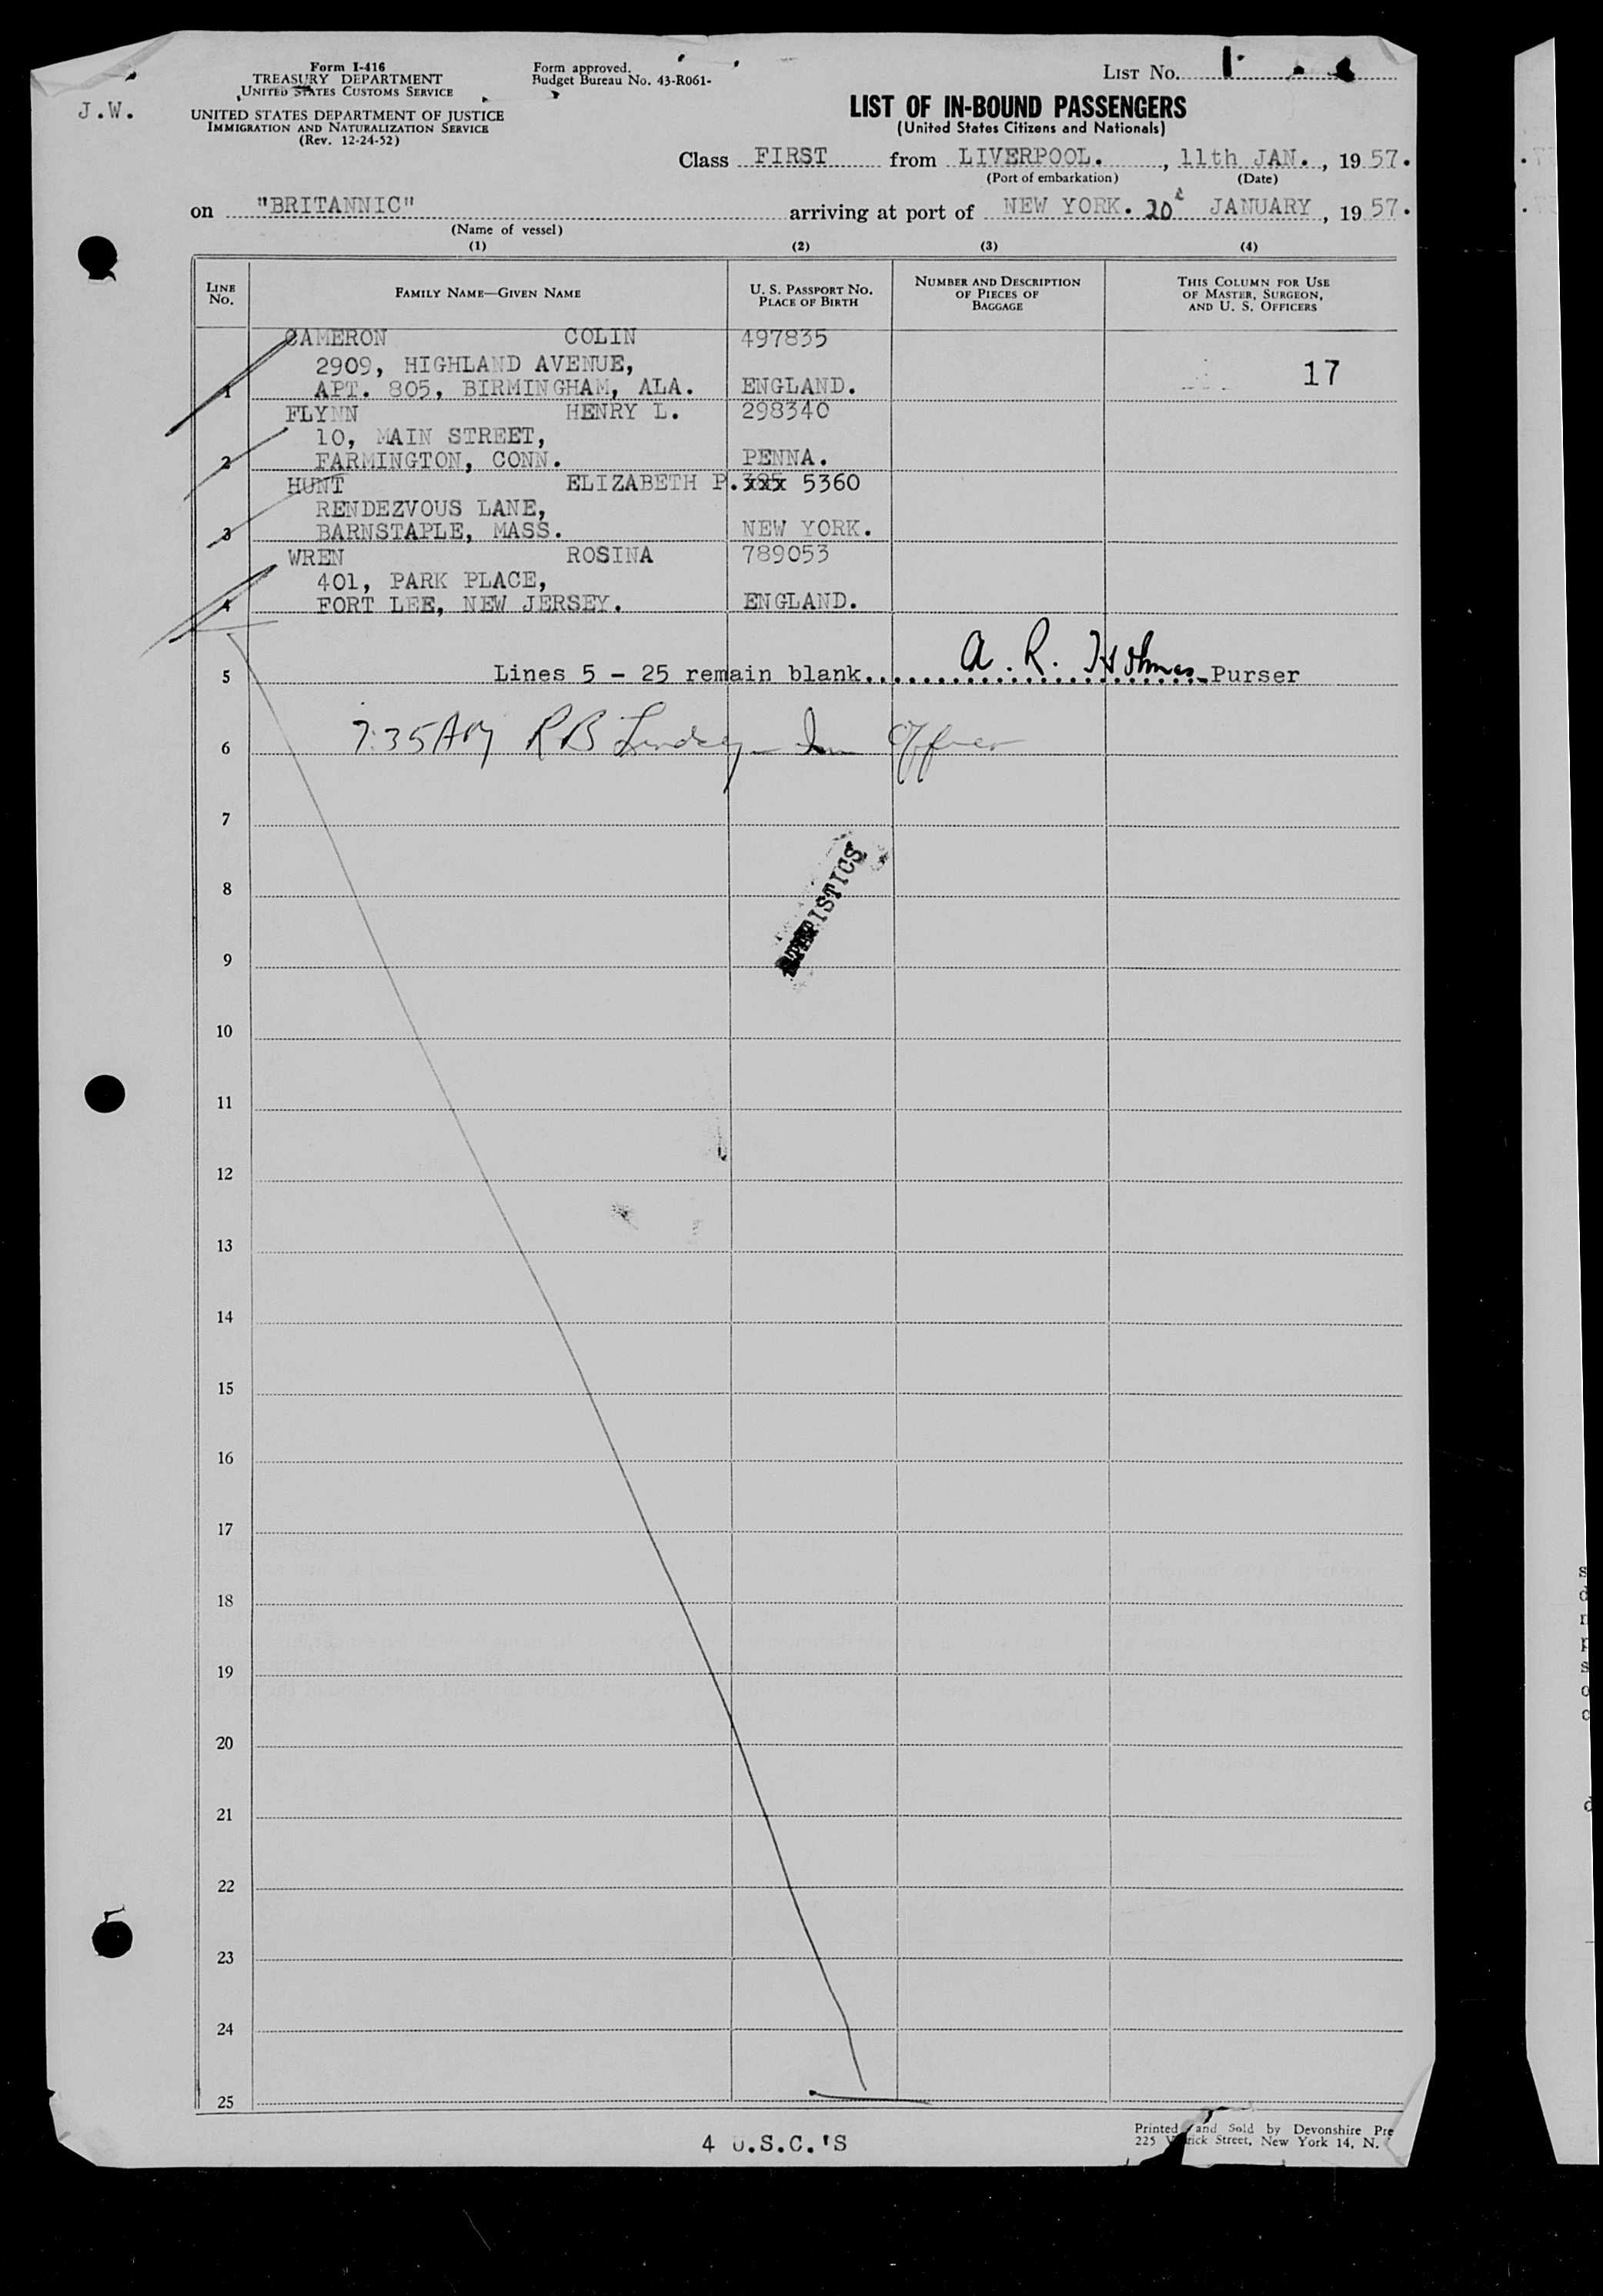 J.W.
Form I-416
TREASURY DEPARTMENT
UNITED STATES CUSTOMS SERVICE
UNITED STATES DEPARTMENT OF JUSTICE
IMMIGRATION AND NATURALIZATION SERVICE
(Rev. 12-24-52)
Form approved.
Budget Bureau No. 43-R061-
LIST No. 1
LIST OF IN-BOUND PASSENGERS
(United States Citizens and Nationals)
Class FIRST from LIVERPOOL., 11th JAN., 1957.
(Port of embarkation) (Date)
on "BRITANNIC" arriving at port of NEW YORK. 20 JANUARY, 1957.
(Name of vessel)
(1) (2) (3) (4)
LINE No. FAMILY NAME—GIVEN NAME U. S. PASSPORT NO. PLACE OF BIRTH NUMBER AND DESCRIPTION OF PIECES OF BAGGAGE THIS COLUMN FOR USE OF MASTER, SURGEON, AND U. S. OFFICERS
CAMERON COLIN 497835
2909, HIGHLAND AVENUE, 17
1 APT. 805, BIRMINGHAM, ALA. ENGLAND.
FLYNN HENRY L. 298340
10, MAIN STREET,
2 FARMINGTON, CONN. PENNA.
HUNT ELIZABETH P. xxx 5360
RENDEZVOUS LANE,
3 BARNSTAPLE, MASS. NEW YORK.
WREN ROSINA 789053
401, PARK PLACE,
4 FORT LEE, NEW JERSEY. ENGLAND.
5 Lines 5 - 25 remain blank. A. R. Holmes Purser
6 7:35AM R B Lindsey - Imm Officer
7
8
9
10
11
12
13
14
15
16
17
18
19
20
21
22
23
24
25
4 U.S.C.'S
Printed and Sold by Devonshire Pre
225 Street, New York 14, N.